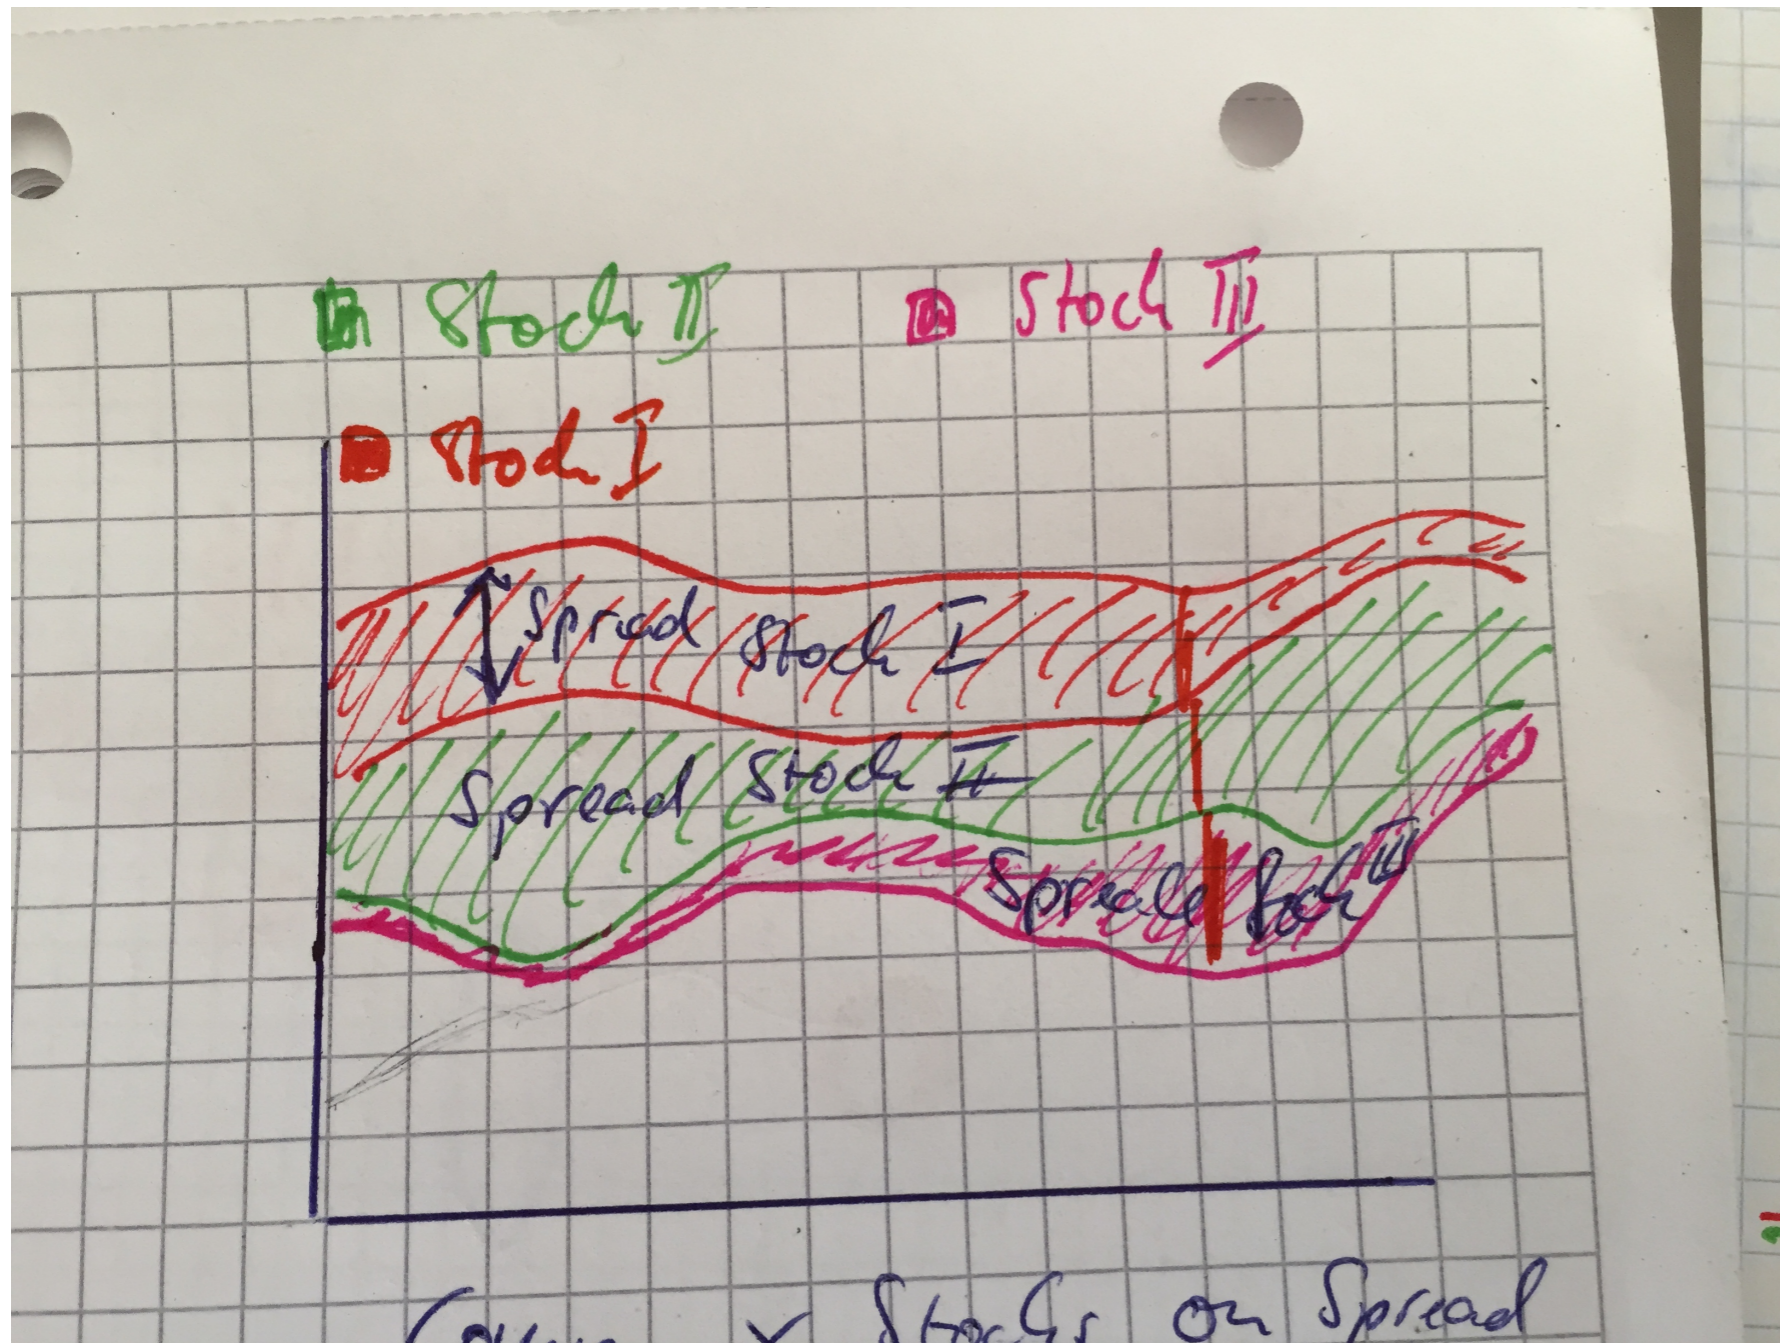 Stock II Stock III
Stock I
Spread Stock I
Spread Stock II
Spread Stock III
x Stocks on Spread